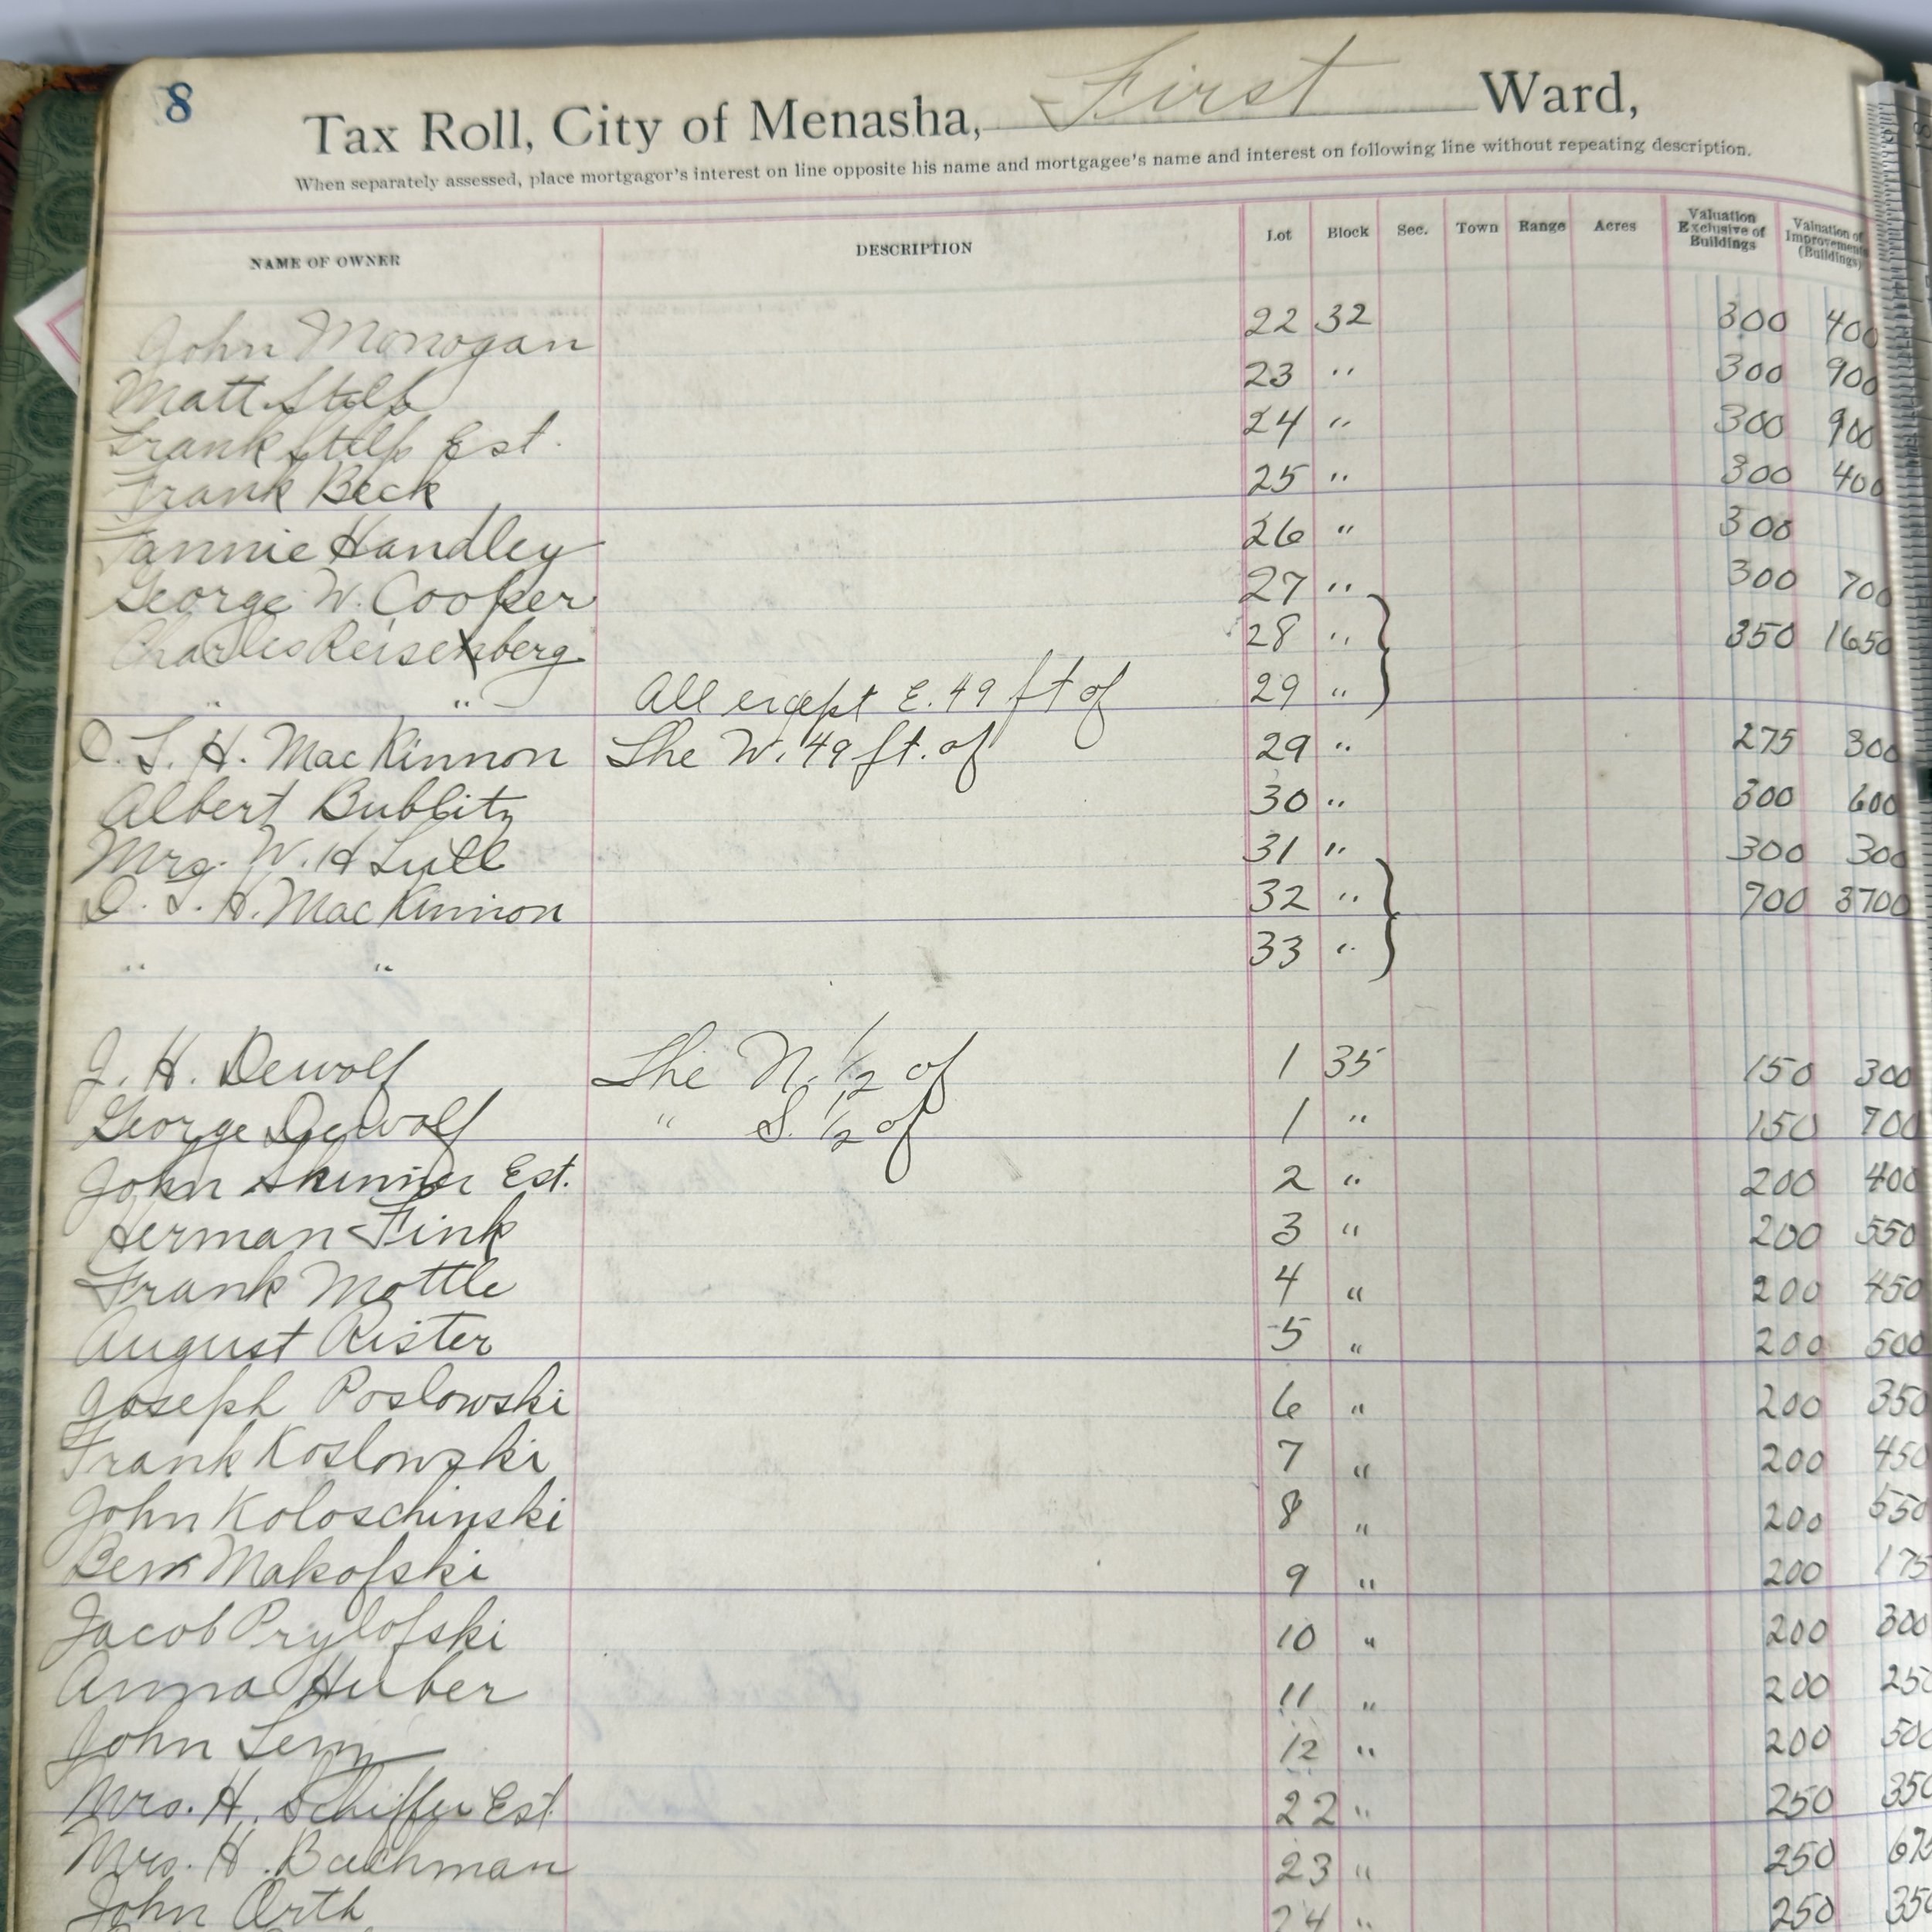 8
Tax Roll, City of Menasha, First Ward,
When separately assessed, place mortgagor's interest on line opposite his name and mortgagee's name and interest on following line without repeating description.
NAME OF OWNER DESCRIPTION Lot Block Sec. Town Range Acres Valuation Exclusive of Buildings Valuation of Improvements (Buildings)
John Monogan 22 32 300 400
Matt Stilp 23 " 300 900
Frank Stilp Est. 24 " 300 900
Frank Beck 25 " 300 400
Fannie Handley 26 " 300
George W. Cooker 27 " 300 700
Charles Reisenberg 28 " 350 1650
" " All except E. 49 ft of 29 "
O. T. H. MacKinnon The W. 49 ft. of 29 " 275 300
Albert Bublitz 30 " 300 600
Mrs. W. H Lull 31 " 300 300
O. T. H. MacKinnon 32 " 700 3700
" " 33 "
J. H. Dewolf The N. 1/2 of 1 35 150 300
George DeWolf " S. 1/2 of 1 " 150 700
John Skinner Est. 2 " 200 400
Herman Fink 3 " 200 550
Frank Mottle 4 " 200 450
August Rister 5 " 200 500
Joseph Poslowski 6 " 200 350
Frank Koslowski 7 " 200 450
John Koloschinski 8 " 200 550
Ben Makofski 9 " 200 175
Jacob Prylofski 10 " 200 300
Anna Huber 11 " 200 250
John 12 " 200 500
Mrs. H. Schiffer Est. 22 " 250 350
Mrs. H. Bachman 23 " 250
John Orth 24 " 250 350